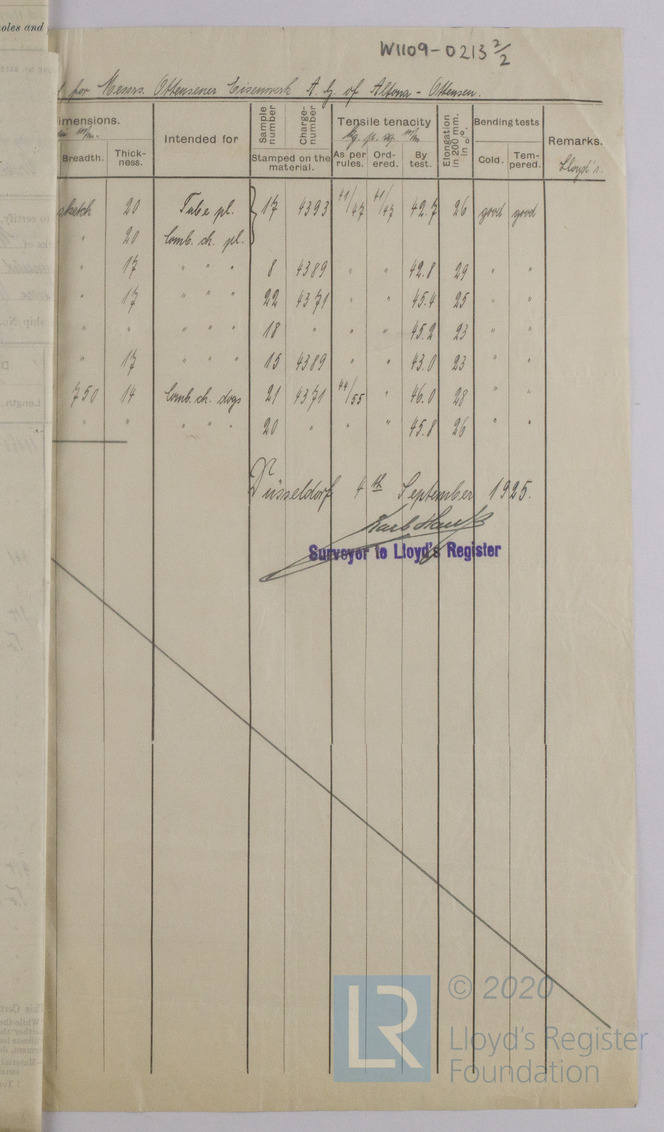 oles and
W1109-0213 2/2
for Messrs. Ottensener Eisenwerk A. G. of Altona - Ottensen.
imensions.
Breadth. Thickness.
Intended for
Sample number
Charge-number
Stamped on the material.
Tensile tenacity
As per rules. Ordered. By test.
Elongation in 200 mm. in %.
Bending tests
Cold. Tempered.
Remarks.
Lloyd's.
sketch 20 Tube pl. } 17 4393 41/47 41/47 42.7 26 good good
" 20 Comb. ch. pl.
" 17 " " " 8 4389 " " 42.8 29 " "
" 17 " " " 22 4371 " " 45.4 25 " "
" " " " " 18 " " " 45.2 23 " "
" 17 " " " 15 4389 " " 43.0 23 " "
750 14 Comb. ch. dogs 21 4371 44/55 " 46.0 28 " "
" " " " " 20 " " " 45.8 26 " "
Düsseldorf 4th September 1925.
Surveyor to Lloyd's Register
LR
© 2020
Lloyd's Register
Foundation